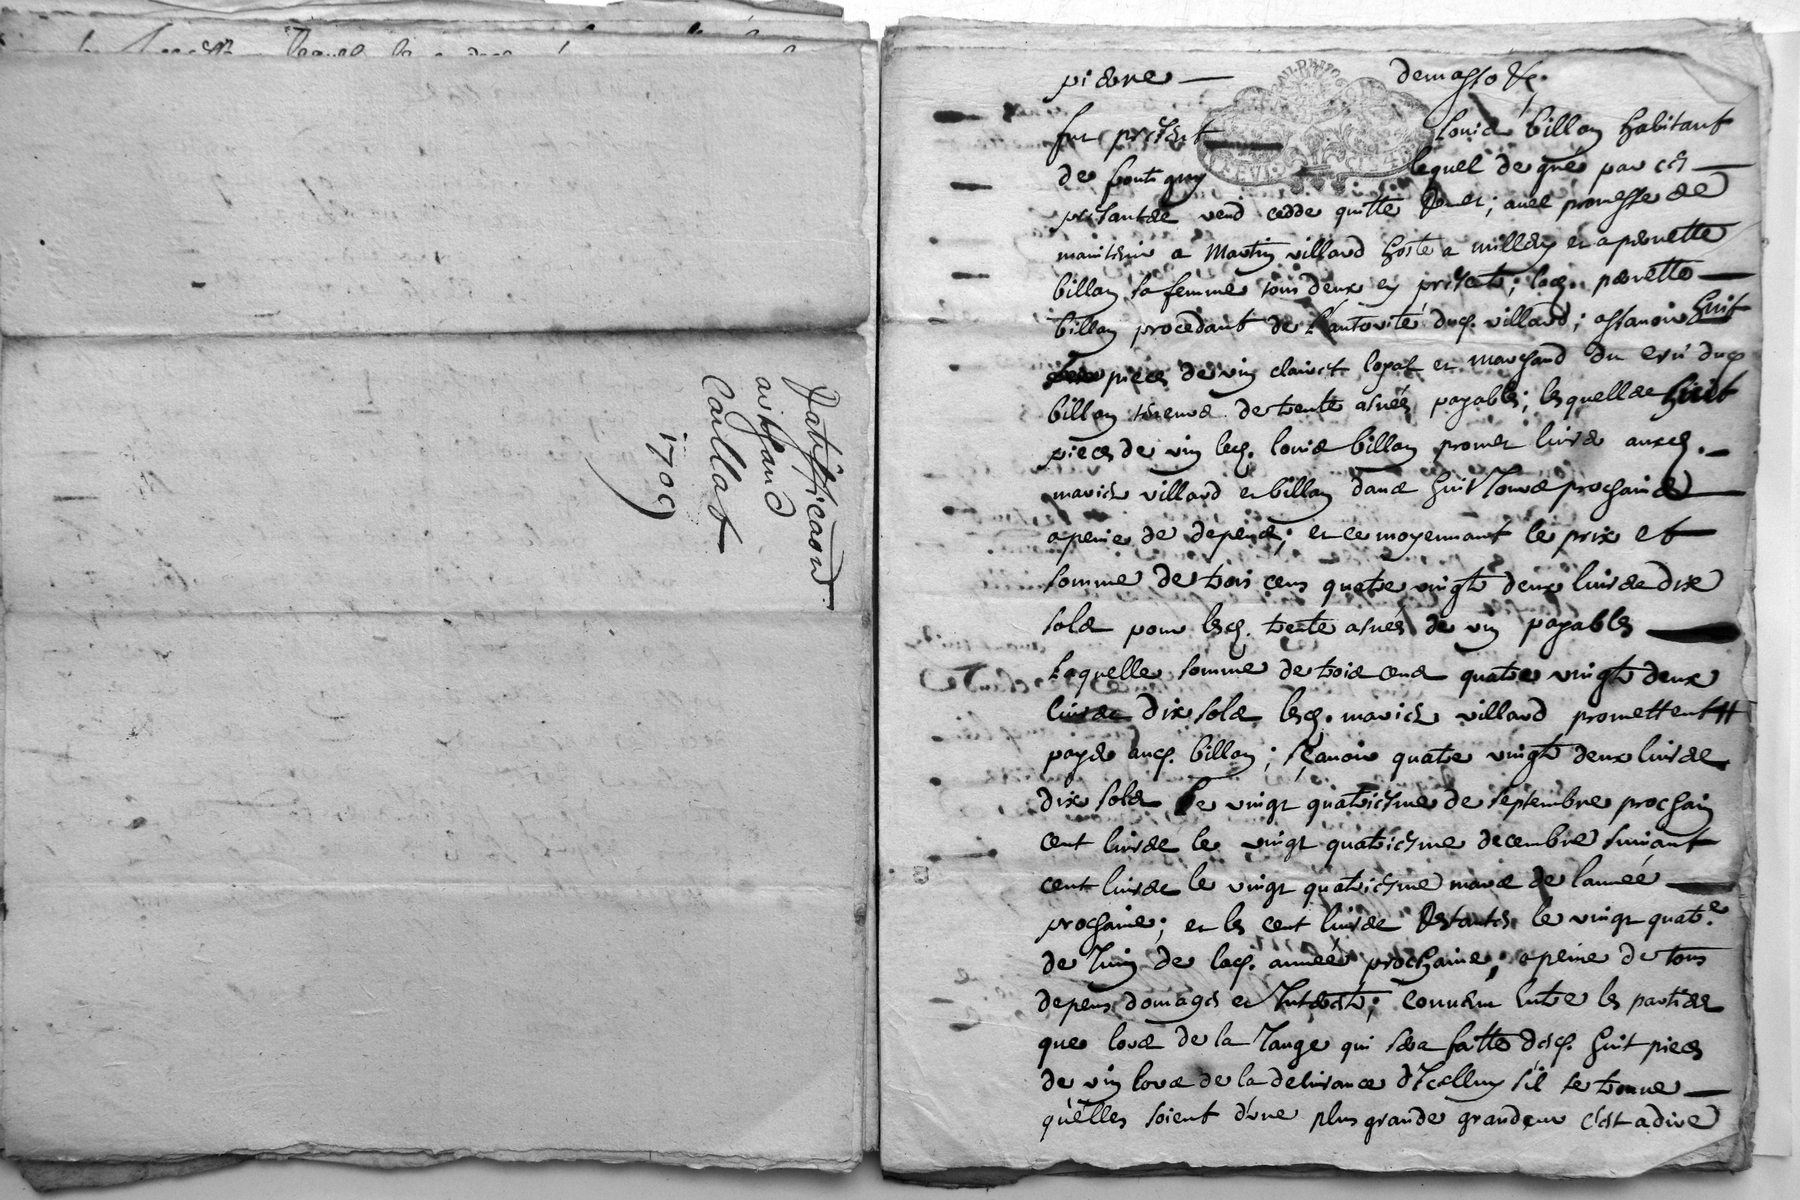 Rattifficaon
archand
Caillat
1709
pierre — demasso &c.
fut present Louis billon habitant
de frontigny lequel de gré par ces —
presantes vend cedde quitte Remet; avec promesse de
maintenir a Martin villard hoste a millery et a pierrette
billon sa femme tous deux cy presents; lad. pierrette —
billon procedant de l'autorité dud. villard; assavoir huit
pieces de vin clairet loyal et marchand du crû dud
billon tenans de trente asnées payables; lesquelles huit
pieces de vin led. louis billon promet livrer auxd. —
mariés villard et billon dans huit Jours prochains —
a peine de depens; et ce moyennant le prix et —
somme de trois cens quatre vingt deux livres dix
sols pour lesd. trente asnées de vin payables —
Laquelle somme de trois cens quatre vingt deux
livres dix sols lesd. mariés villard promettent
payer aud. billon; sçavoir quatre vingt deux livres
dix sols le vingt quatriesme de septembre prochain
cent livres le vingt quatriesme decembre suivant
cent livres le vingt quatriesme mars de l'année —
prochaine; et les cent livres Restantes le vingt quatre
de Juin de lad. année prochaine; a peine de tous
depens domages et Interests; convenu entre les parties
que lors de la Jauge qui sera faitte desd. huit pieces
de vin lors de la delivrance d'Icelluy s'il se trouve —
qu'elles soient d'une plus grande grandeur c'est a dire